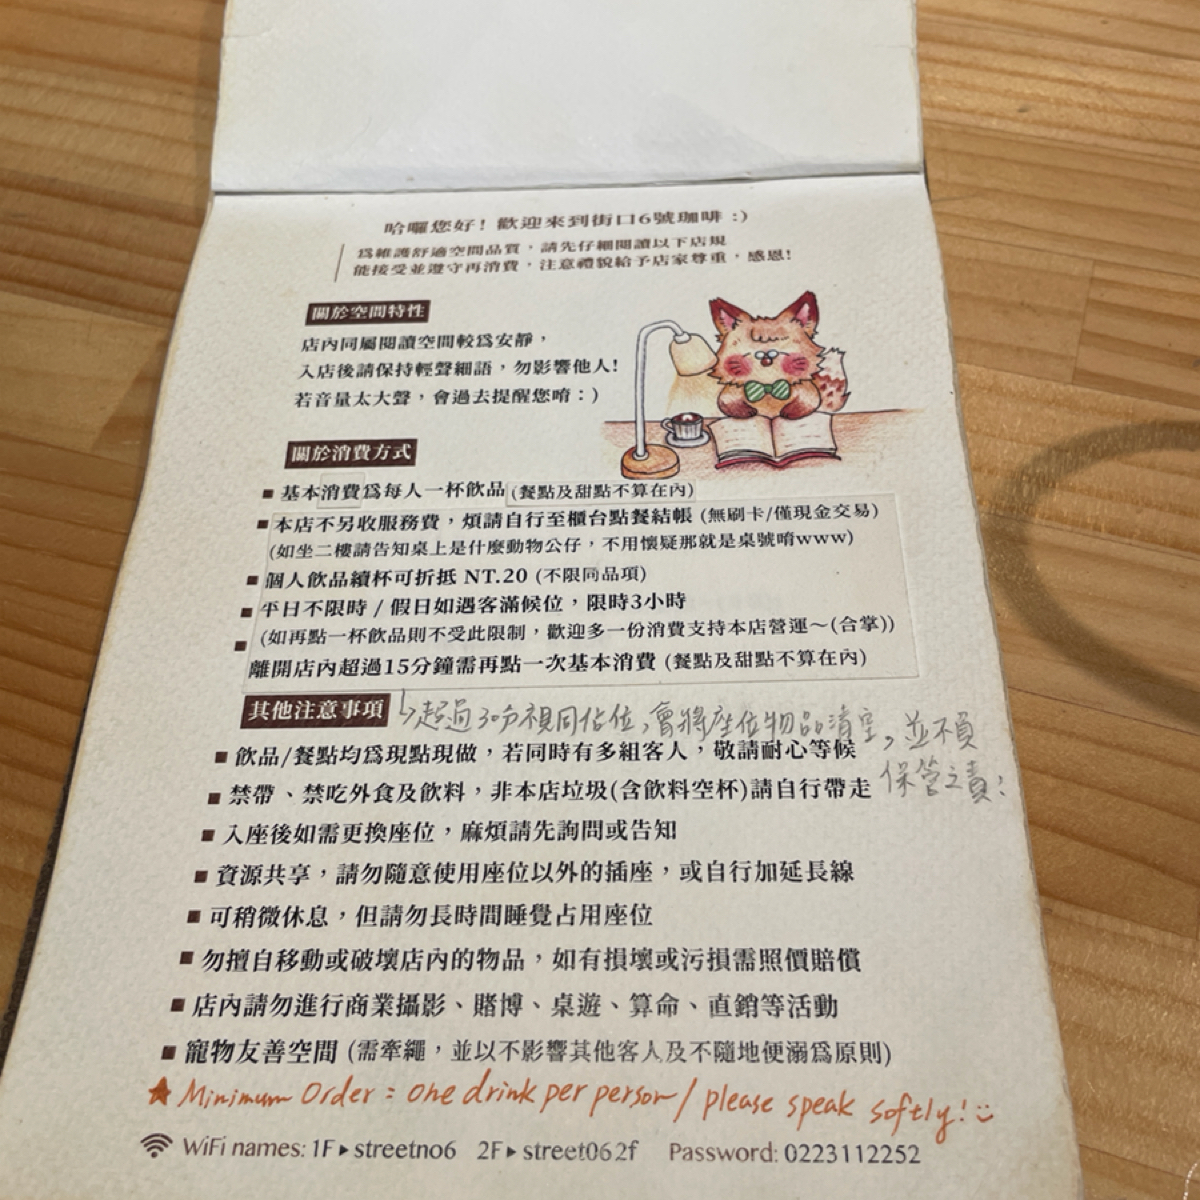 哈囉您好！歡迎來到街口6號珈啡 :)
為維護舒適空間品質，請先仔細閱讀以下店規
能接受並遵守再消費，注意禮貌給予店家尊重，感恩！
關於空間特性
店內同屬閱讀空間較為安靜，
入店後請保持輕聲細語，勿影響他人！
若音量太大聲，會過去提醒您唷：)
關於消費方式
■ 基本消費為每人一杯飲品 (餐點及甜點不算在內)
■ 本店不另收服務費，煩請自行至櫃台點餐結帳 (無刷卡/僅現金交易)
(如坐二樓請告知桌上是什麼動物公仔，不用懷疑那就是桌號唷www)
■ 個人飲品續杯可折抵 NT.20 (不限同品項)
■ 平日不限時 / 假日如遇客滿候位，限時3小時
(如再點一杯飲品則不受此限制，歡迎多一份消費支持本店營運～(合掌))
■ 離開店內超過15分鐘需再點一次基本消費 (餐點及甜點不算在內)
↳超過30分視同佔位，會將座位物品清空，並不負
保管之責：
其他注意事項
■ 飲品/餐點均為現點現做，若同時有多組客人，敬請耐心等候
■ 禁帶、禁吃外食及飲料，非本店垃圾(含飲料空杯)請自行帶走
■ 入座後如需更換座位，麻煩請先詢問或告知
■ 資源共享，請勿隨意使用座位以外的插座，或自行加延長線
■ 可稍微休息，但請勿長時間睡覺占用座位
■ 勿擅自移動或破壞店內的物品，如有損壞或污損需照價賠償
■ 店內請勿進行商業攝影、賭博、桌遊、算命、直銷等活動
■ 寵物友善空間 (需牽繩，並以不影響其他客人及不隨地便溺為原則)
★ Minimum Order = one drink per person / please speak softly! :)
WiFi names: 1F▸streetno6 2F▸street062f Password: 0223112252